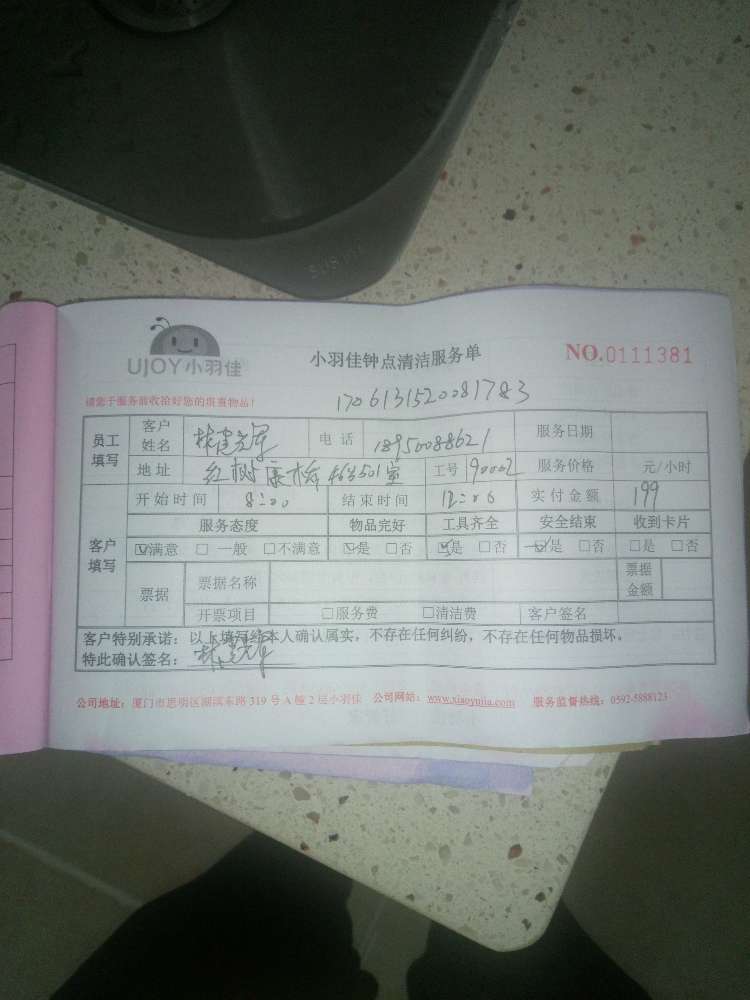 SUS
UJOY小羽佳
小羽佳钟点清洁服务单
NO.0111381
请您于服务前收拾好您的贵重物品!
1706131520081783
员工填写 客户姓名 林 军 电话 18950088621 服务日期
地址 红树康桥 501室 工号 90002 服务价格 元/小时
客户填写 开始时间 8:00 结束时间 12:00 实付金额 199
服务态度 物品完好 工具齐全 安全结束 收到卡片
☑满意 □一般 □不满意 ☑是 □否 ☑是 □否 ☑是 □否 □是 □否
票据 票据名称 票据金额
开票项目 □服务费 □清洁费 客户签名
客户特别承诺:以上填写经本人确认属实,不存在任何纠纷,不存在任何物品损坏。
特此确认签名:林 军
公司地址:厦门市思明区湖滨东路319号A幢2层小羽佳 公司网站:www.xiaoyujia.com 服务监督热线:0592-5888123